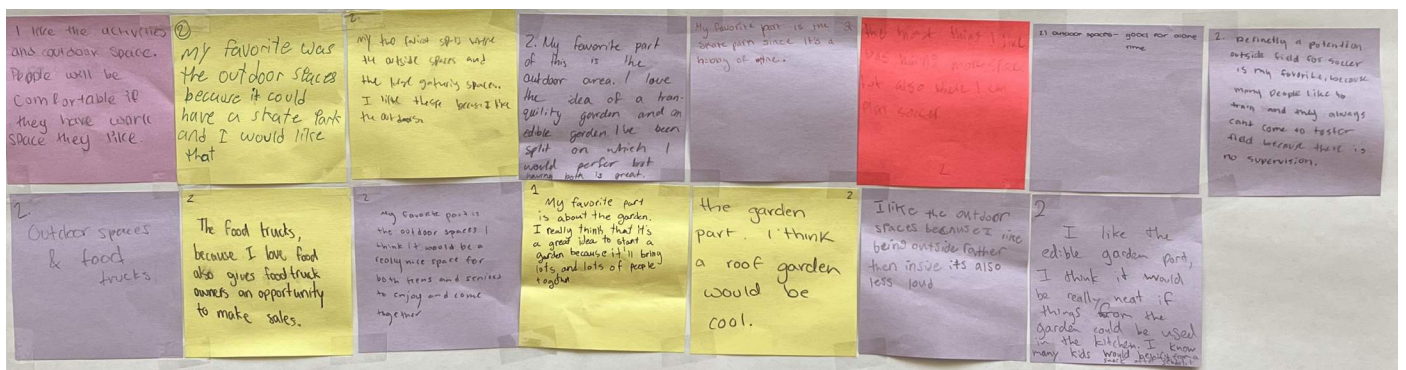 I like the activities
and outdoor space.
People will be
comfortable if
they have work
space they like.
2
My favorite was
the outdoor spaces
because it could
have a skate Park
and I would like
that
2.
my two favorit spots where
the outside spaces and
the large gathering spaces.
I like these because I like
the outdoors
2. My favorite part
of this is the
outdoor area. I love
the idea of a tran-
quility garden and an
edible garden I've been
split on which I
would perfer but
having both is great.
My favorite part is the 2
skate park since it's a
hobby of mine.
the most things I like
but also where I can
play soccer
2
2) outdoor spaces- good for alone
time
2. Definetly a potential
outside field for soccer
is my favorite, because
many people like to
train and they always
cant come to foster
field because there is
no supervision.
2.
Outdoor spaces
& food
trucks
2
The food trucks,
because I love food
also gives food truck
owners an opportunity
to make sales.
2
My favorite part is
the outdoor spaces I
think it would be a
really nice space for
both teens and seniors
to enjoy and come
together
1
My favorite part
is about the garden.
I really think that it's
a great idea to start a
garden because it'll bring
lots and lots of people
together
2
the garden
part. I think
a roof garden
would be
cool.
I like the outdoor
spaces because I like
being outside rather
then inside its also
less loud
2
I like the
edible garden part,
I think it would
be really neat if
things from the
garden could be used
in the kitchen. I know
many kids would